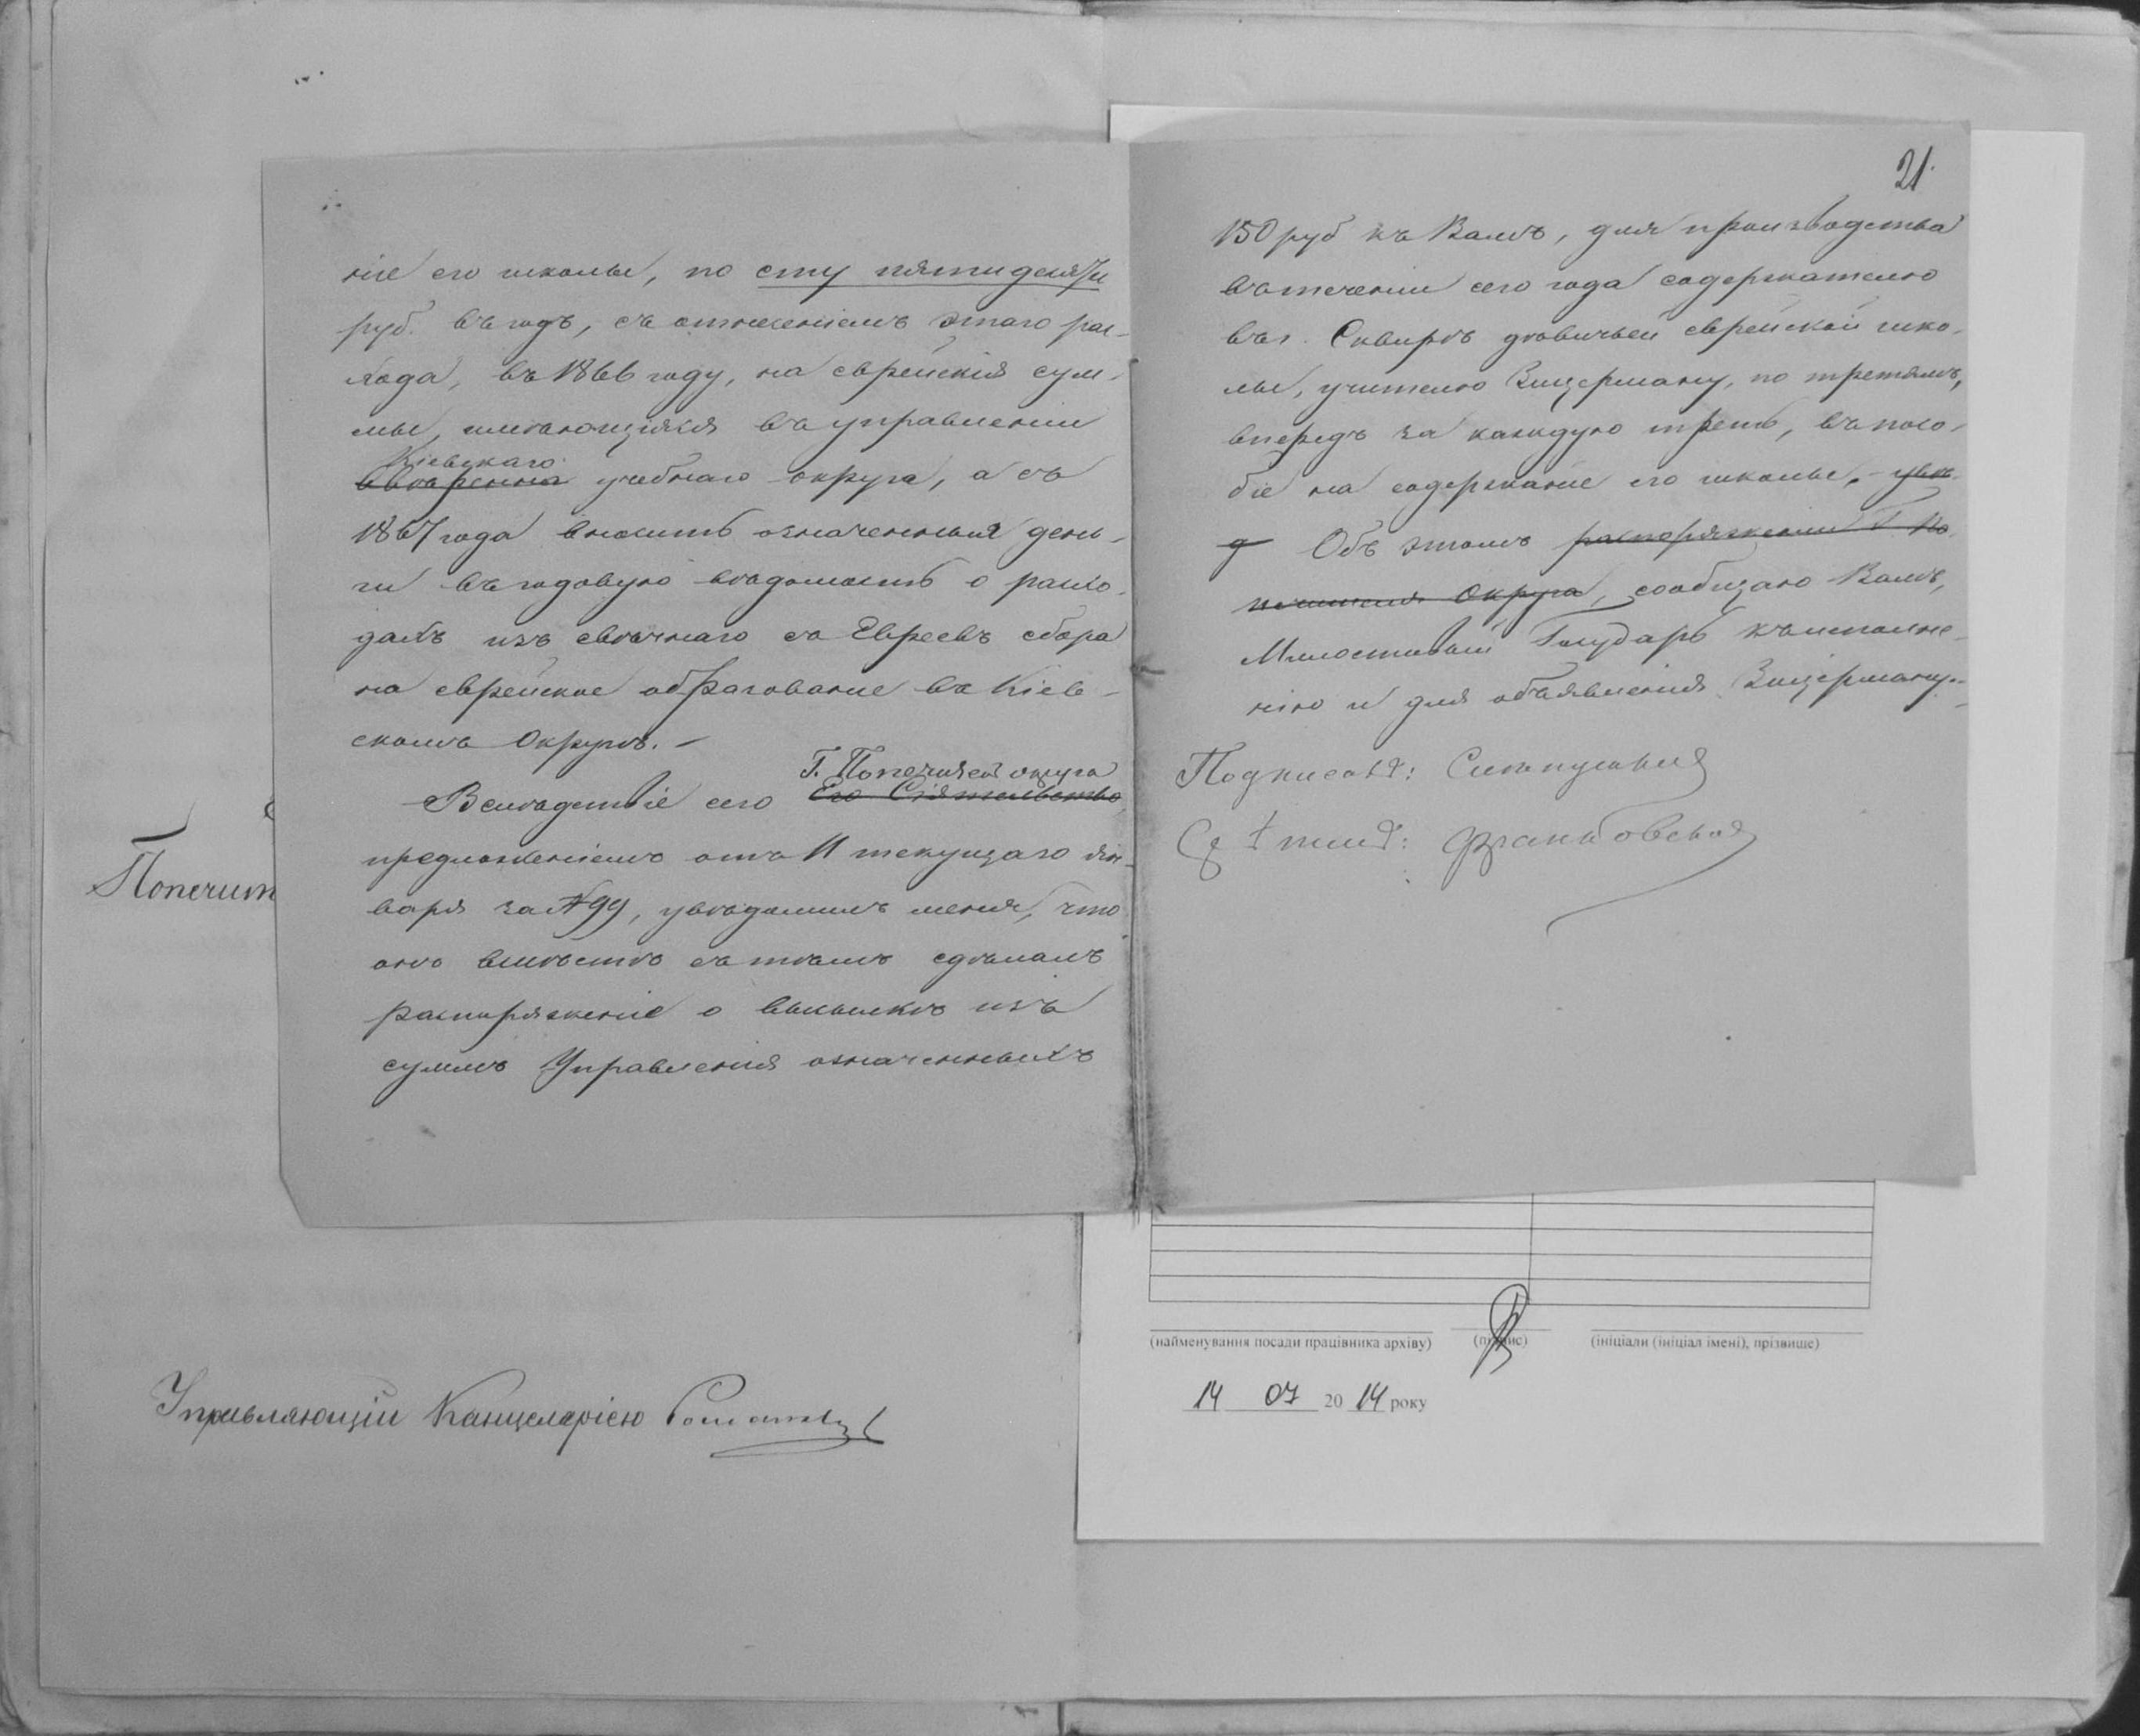 ніе его школы, по сту пятидесяти
руб. въ годъ, съ отнесеніемъ этаго рас-
хода, въ 1866 году, на еврейскія сум-
мы, имѣющіяся въ управленіи
Кіевскаго
ввѣренна учебнаго округа, а съ
1867 года вносить означенныя день-
ги въ годовую вѣдомость о расхо-
дахъ изъ свѣчнаго съ Евреевъ сбора
на еврейское образованіе въ Кіев-
скомъ Округѣ. –
Г. Попечитель округа
Вслѣдствіе сего Его Сіятельство
предложеніемъ отъ 11 текущаго ян-
варя за № 99, увѣдомилъ меня, что
онъ вмѣстѣ съ тѣмъ сдѣлалъ
распоряженіе о высылкѣ изъ
суммъ Управленія означенныхъ
21.
150 руб къ Вамъ, для производства
въ теченіи сего года содержателю
въ г. Сквирѣ дѣвичьей еврейской шко-
лы, учителю Зицерману, по третямъ,
впередъ за каждую треть, въ посо-
біе на содержаніе его школы. – увѣ-
д Объ этомъ распоряженіи Г. По-
печителя Округа, сообщаю Вамъ,
Милостивый Государь къ исполне-
нію и для объявленія Зицерману. –
Подписалъ:
Попечит
Управляющій Канцеляріею
(найменування посади працівника архіву) (підпис) (ініціали (ініціал імені), прізвище)
14 07 20 14 року